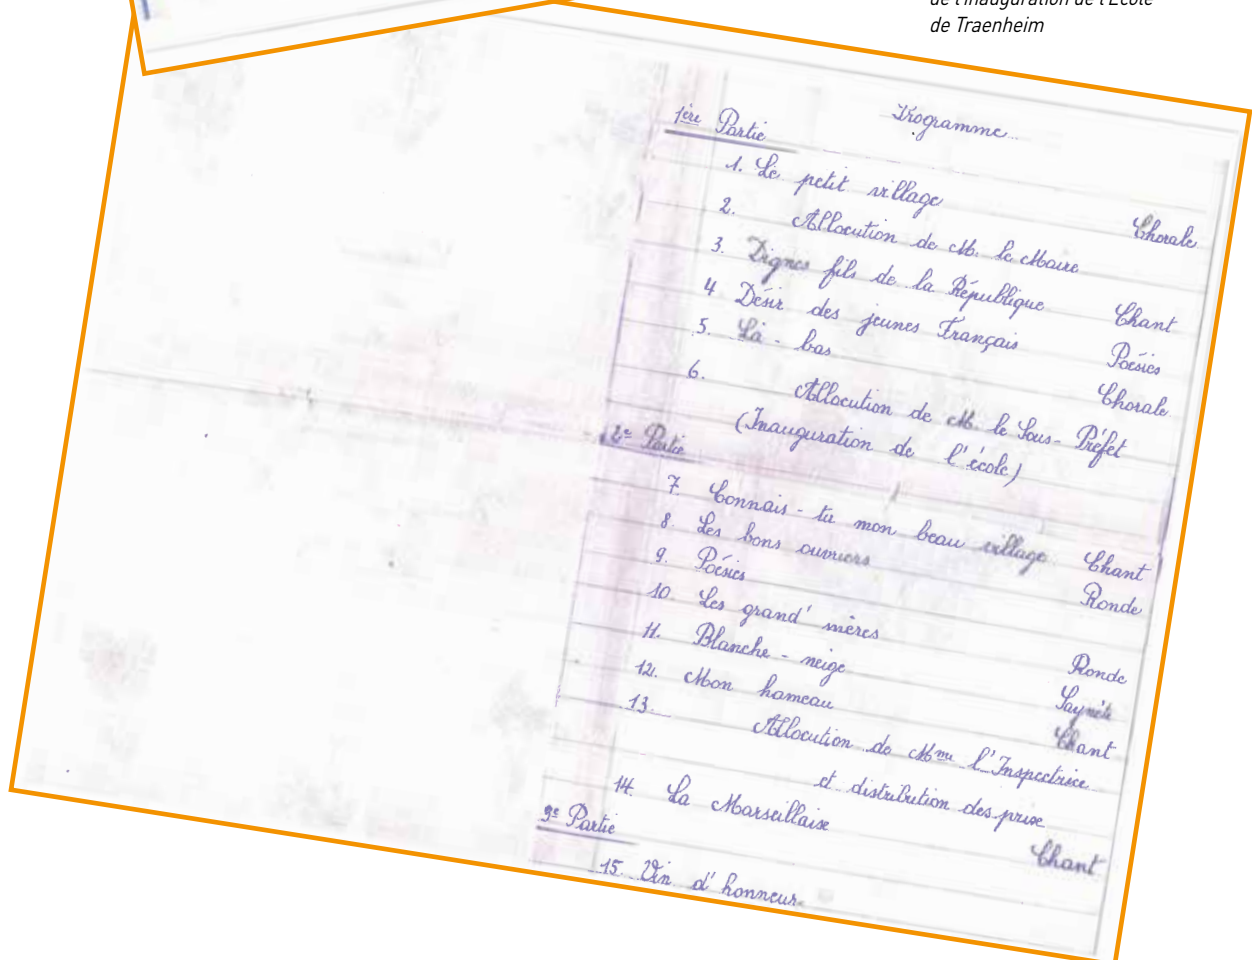 de l'inauguration de l'École
de Traenheim
Programme
1ère Partie
1. Le petit village Chorale
2. Allocution de M. le Maire
3. Dignes fils de la République Chant
4 Désir des jeunes Français Poésies
5. Là-bas Chorale
6. Allocution de M. le Sous-Préfet
(Inauguration de l'école)
2e Partie
7. Connais-tu mon beau village Chant
8. Les bons ouvriers Ronde
9. Poésies
10. Les grand' mères Ronde
11. Blanche-neige Saynète
12. Mon hameau Chant
13. Allocution de Mme l'Inspectrice
et distribution des prix
14. La Marseillaise Chant
3e Partie
15. Vin d'honneur.